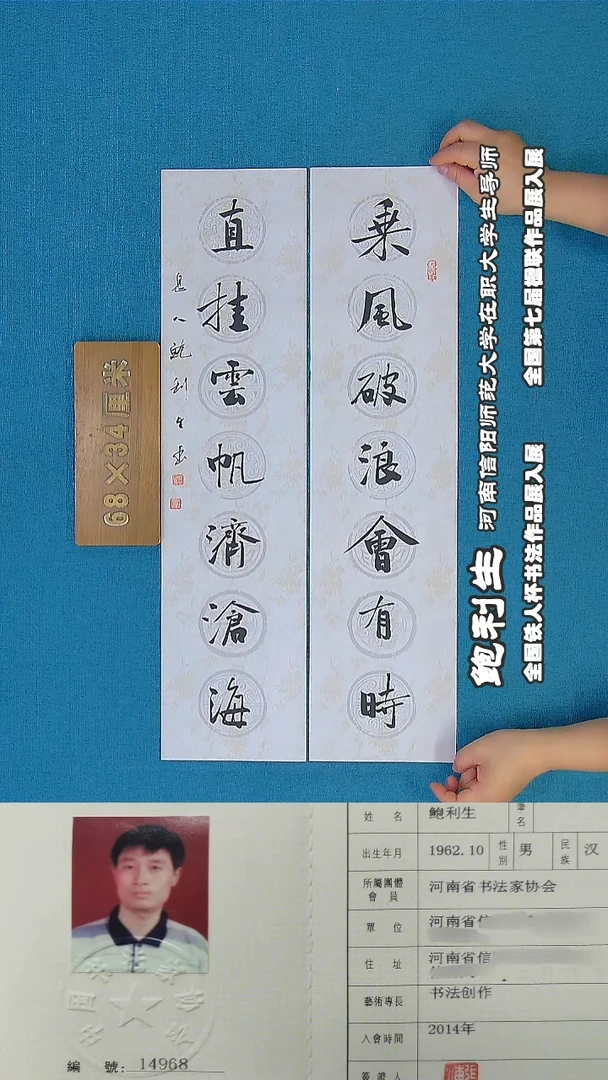 乘風破浪會有時
直挂雲帆濟滄海
息人鲍利生书
68×34厘米
鲍利生 河南信阳师范大学在职大学生导师
全国铁人杯书法作品展入展 全国第七届楹联作品展入展
姓 名 鲍利生 筆名
出生年月 1962.10 性別 男 民族 汉
所屬團體會員 河南省书法家协会
單 位 河南省信
住 址 河南省信
藝術專長 书法创作
入會時間 2014年
簽證人
編 號: 14968